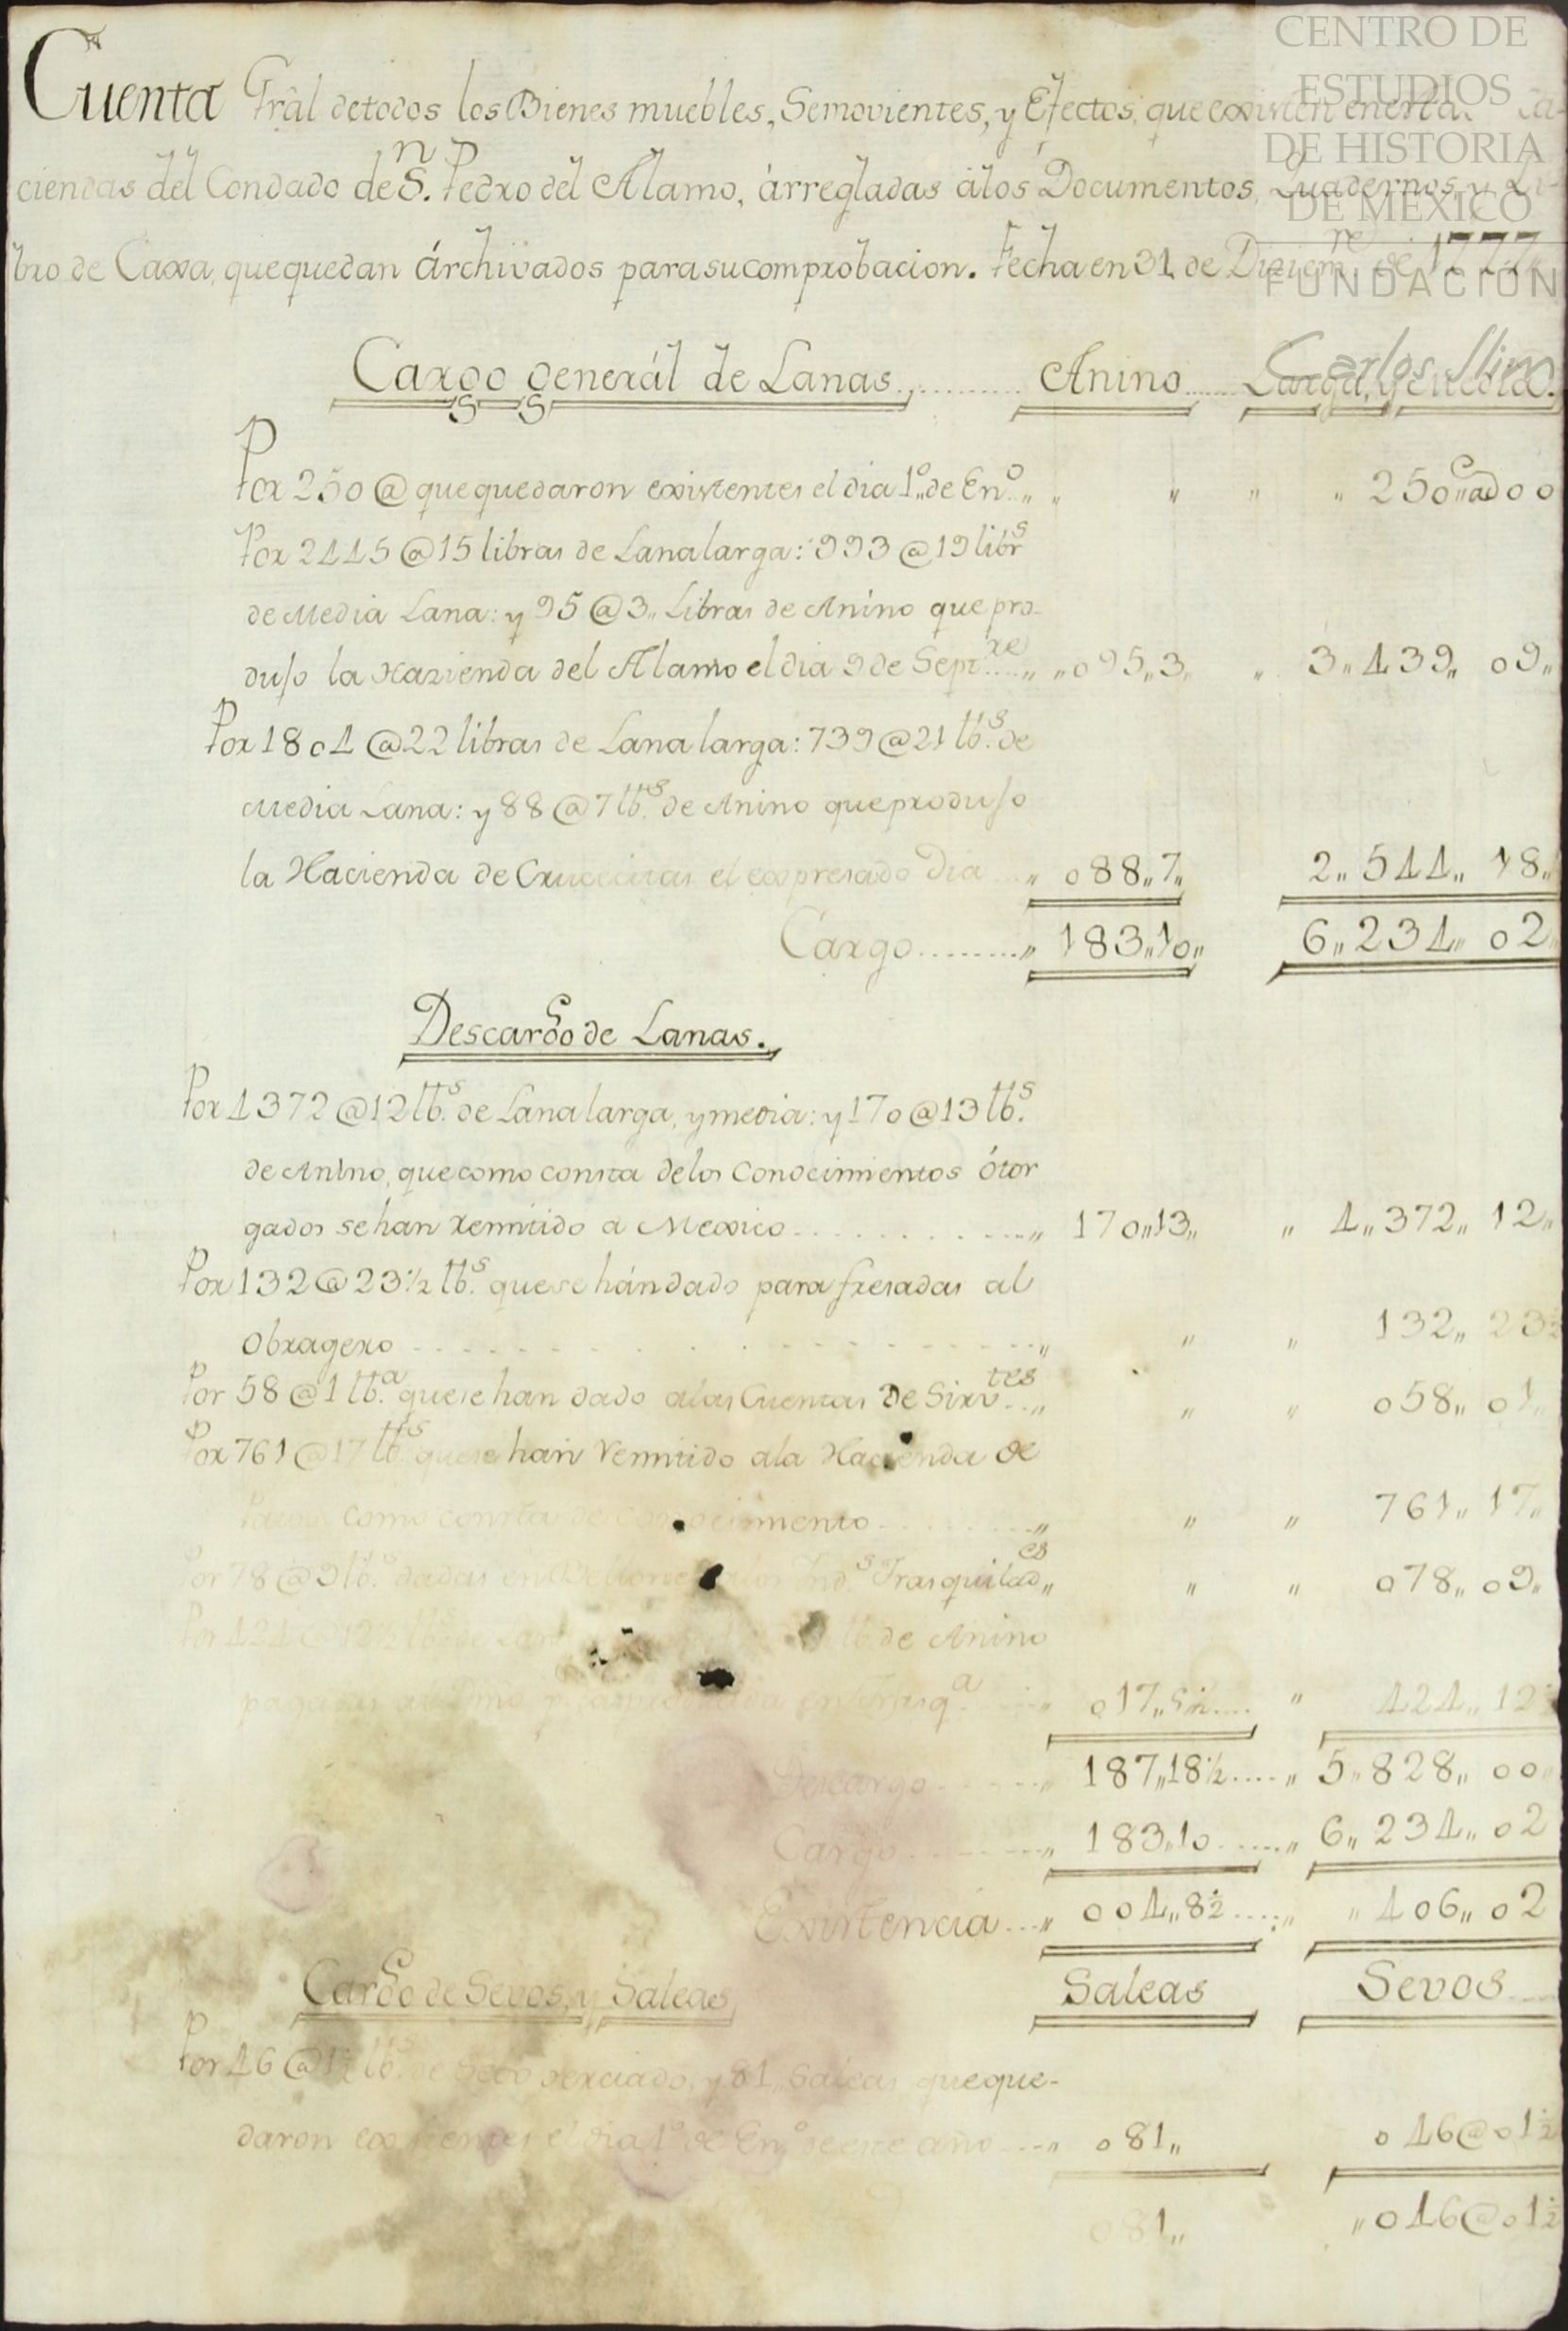 CENTRO DE
ESTUDIOS
DE HISTORIA
DE MEXICO
FUNDACION
Carlos Slim
Cuenta Gral detodos los Bienes muebles, Semovientes, y Efectos, que existen enesta
ciendas del Condado de Sn. Pedro del Alamo, árregladas álos Documentos, Quadernos, y Li-
bro de Caxa, quequedan árchivados parasucomprobacion. Fecha en 31, de Diziemre de 1777.
Cargo generál de Lanas, .......... Anino ..... Larga, y en cola.
Por 250 @ quequedaron existentes el dia 1o. de Eno. " " " " " 250
Por 2445 @ 15 libras de Lana larga: 993 @ 19 librs
de Media Lana: y 95 @ 3,, Libras de Anino que pro-
dujo la Hazienda del Alamo el dia 9 de Septre .... " " 095,, 3,, " 3,, 439,, 09,,
Por 1804 @ 22 libras de Lana larga: 739 @ 21 lbs. de
Media Lana: y 88 @ 7 lbs. de Anino queprodujo
la Hacienda de Crucecitas el expresado Dia ... " 088,, 7,, 2,, 544,, 18,,
Cargo ......... " 183,, 10,, 6,, 234,, 02
Descargo de Lanas.
Por 4372 @ 12 lbs. de Lana larga, y media: y 170 @ 13 lbs.
de Anino, que como consta delos Conocimientos ótor
gados se han Remitido a Mexico ............. " 170,, 13,, " 4,, 372,, 12,,
Por 132 @ 23 1/2 lbs. quese hán dado para fresadas al
Obragero ............. " " " 132,, 23 1/2
Por 58 @ 1 lba. quese han dado alas Cuentas De Sirvtes ... " " " 058,, 01,,
Por 761 @ 17 lbs quese han Remitido ala Hacienda de
como consta de conocimiento ......... " " " 761,, 17,,
Por 78 @ 9 lbs. dadas en Vellones alos Inds Trasquilades " " " 078,, 09,,
Por 424 @ 12 1/2 lbs. de Lan lb. de Anino
en Trasqa .... " 017,, 5 1/2 .... " 424,, 12 1/2
Descargo ...... " 187,, 18 1/2 .... " 5,, 828,, 00,,
Cargo ........ " 183,, 10 ...... " 6,, 234,, 02
Existencia ... " 004,, 8 1/2 .... " " 406,, 02
Cargo de Sevos, y Saleas, Saleas Sevos
Por 46 @ 1 1/2 lbs. de Sevo y 81,, Saleas queque-
daron existentes el dia 1o de Eno de este año .... " 081,, 0 46 @ 01 1/2
081,, " 046 @ 01 1/2